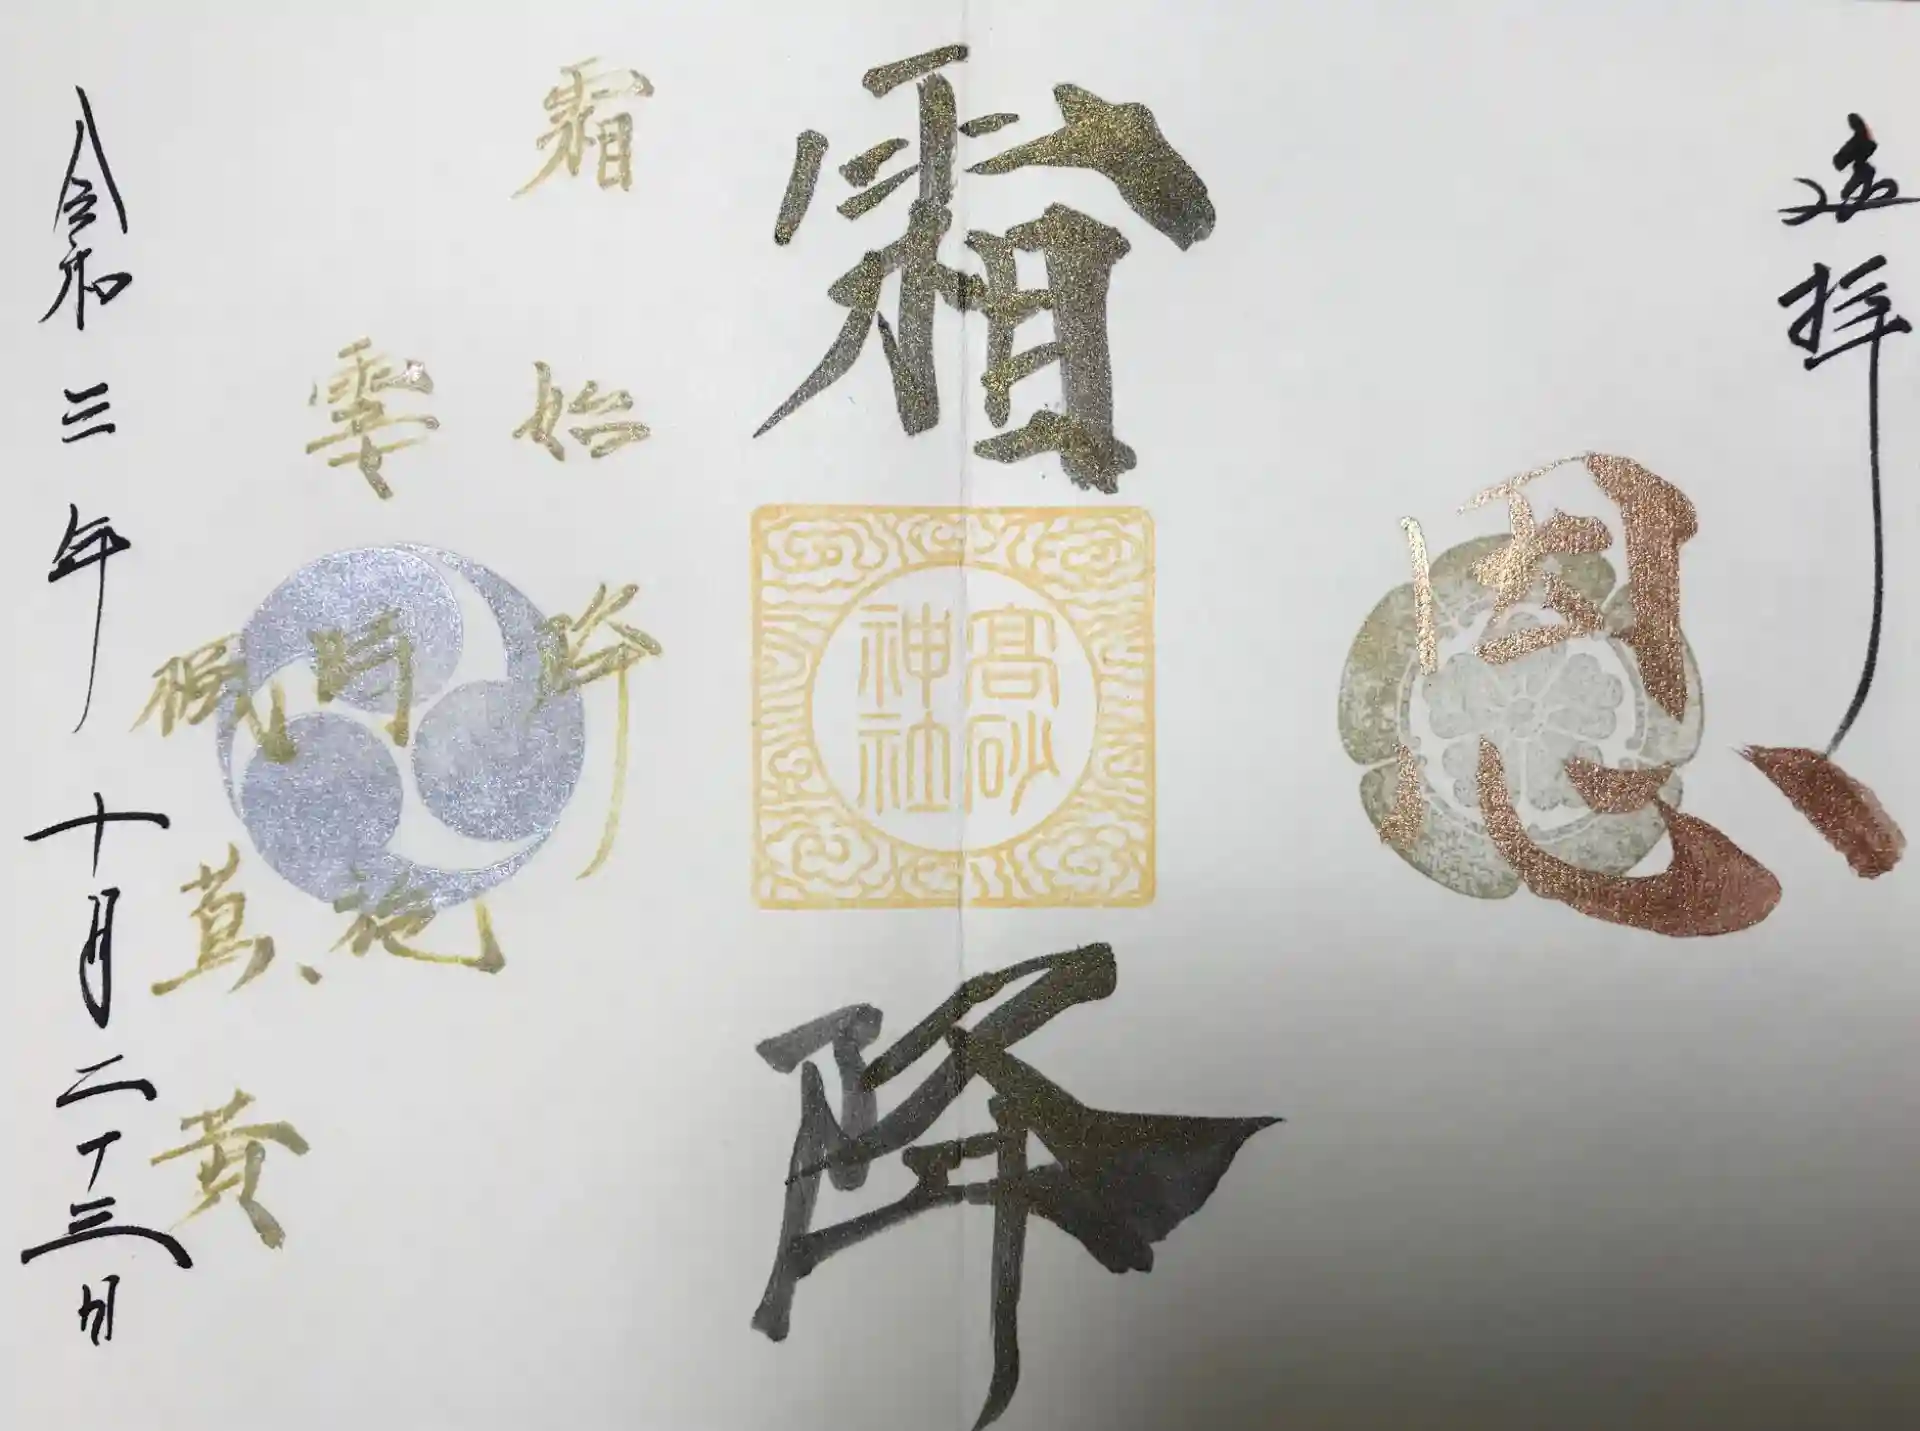 遥拝
恩
霜降
高砂
神社
霜始降
霎時施
楓蔦黄
令和三年十月二十三日